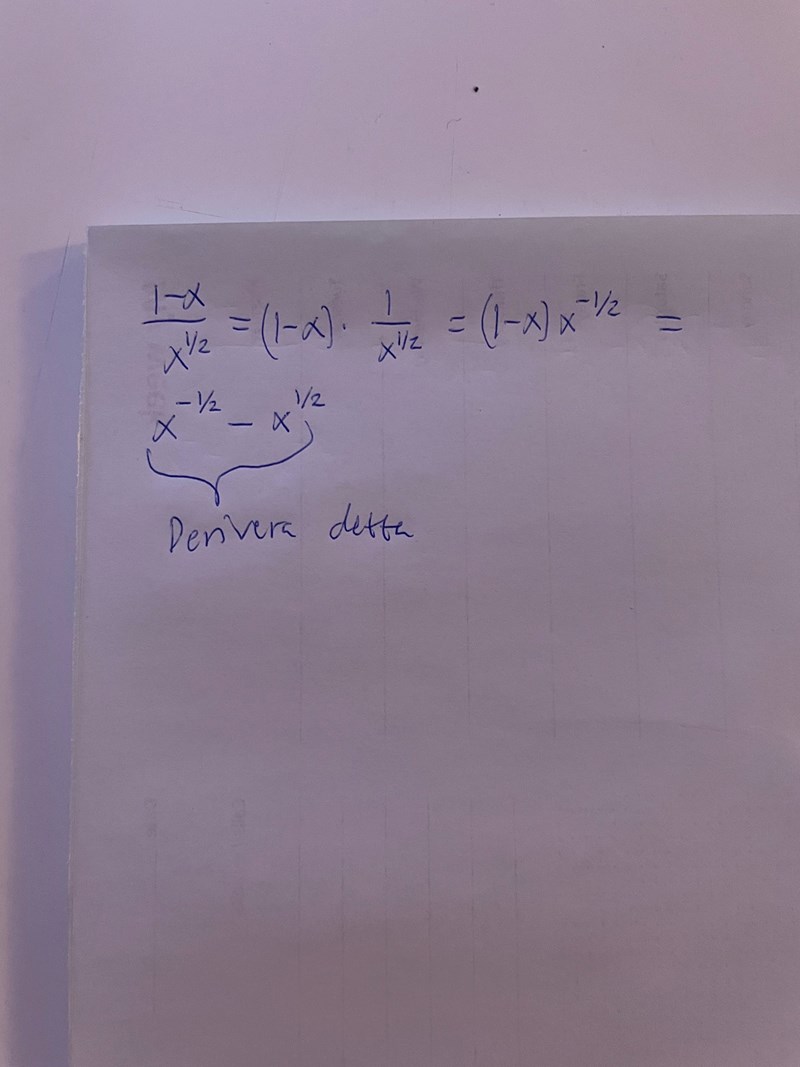 1-x/x^1/2 = (1-x) · 1/x^1/2 = (1-x) x^-1/2 =
x^-1/2 - x^1/2
Derivera detta